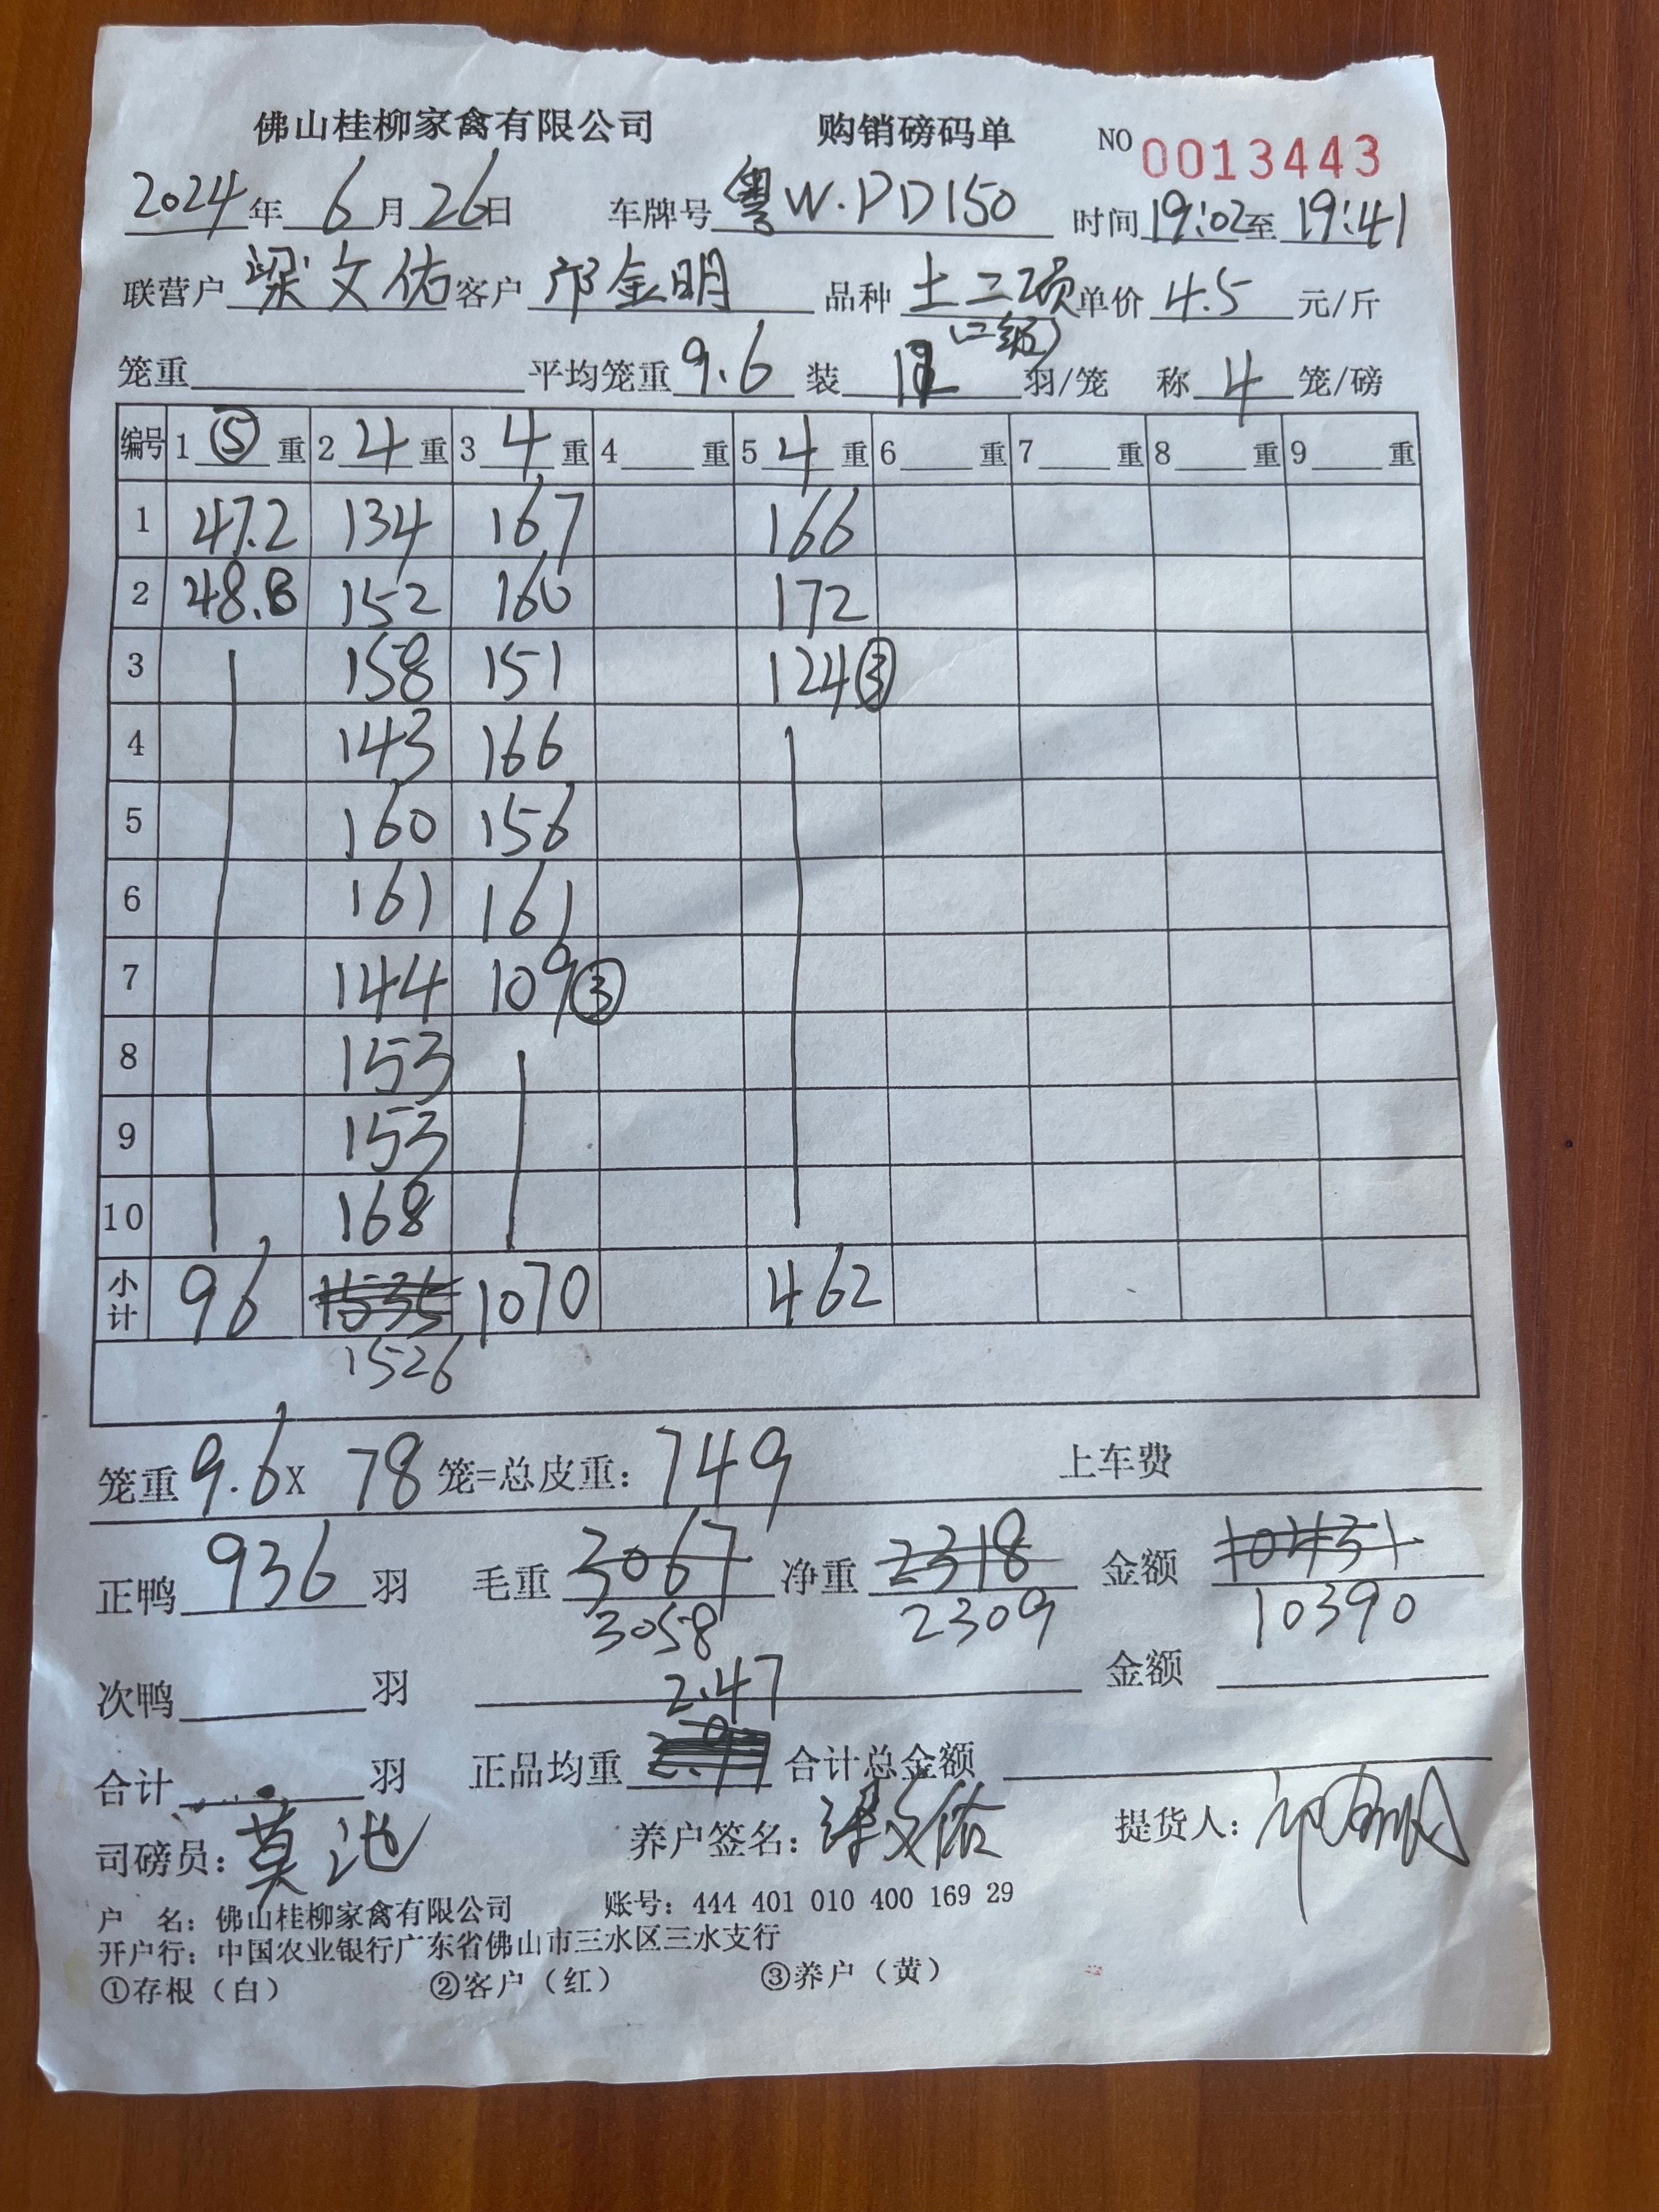 佛山桂柳家禽有限公司 购销磅码单 NO 0013443
2024年 6月26日 车牌号 粤W.PD150 时间19:02至19:41
联营户 梁文佑 客户 邝金明 品种 土二项 单价 4.5 元/斤
(二级)
笼重 平均笼重 9.6 装 12 羽/笼 称 4 笼/磅
编号 1 ⑤ 重 2 4 重 3 4 重 4 重 5 4 重 6 重 7 重 8 重 9 重
1 47.2 134 167 166
2 48.8 152 160 172
3 158 151 124③
4 143 166
5 160 156
6 161 161
7 144 109③
8 153
9 153
10 168
小计 96 1535 1070 462
1526
笼重 9.6 X 78 笼=总皮重: 749 上车费
正鸭 936 羽 毛重 3067 净重 2318 金额 10431
3058 2309 10390
次鸭 羽 2.47 金额
合计 羽 正品均重 合计总金额
司磅员: 莫池 养户签名: 梁文佑 提货人:
户 名: 佛山桂柳家禽有限公司 账号: 444 401 010 400 169 29
开户行: 中国农业银行广东省佛山市三水区三水支行
①存根（白） ②客户（红） ③养户（黄）